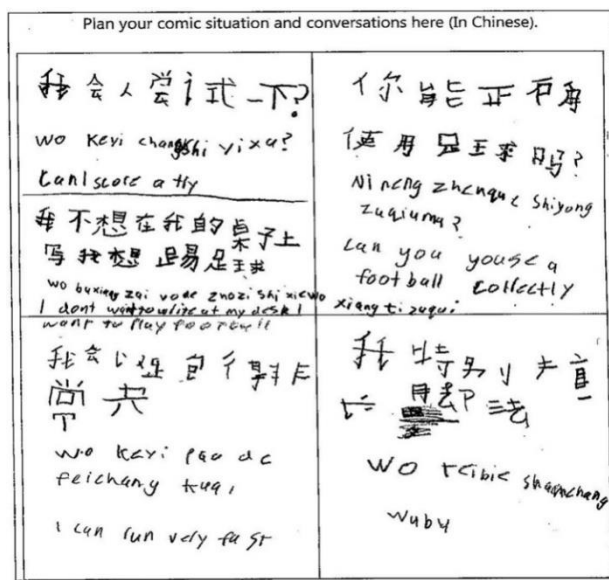 Plan your comic situation and conversations here (In Chinese).
我会人尝试一下?
wo keyi changshi yixa?
Can I score a tly
我不想在我的桌子上
写我想踢足球
wo buxiang zai vode zhozi shi xie wo xiang ti zuqui
I dont want to write at my desk I
want to play football
你能正确
使用足球吗?
Ni neng zhenque shiyong
zuqiuma?
can you youse a
football collectly
我
wo keyi pao de
feichang kuai
i can run very fast
我特别
wo teibie shaanchang
wubu